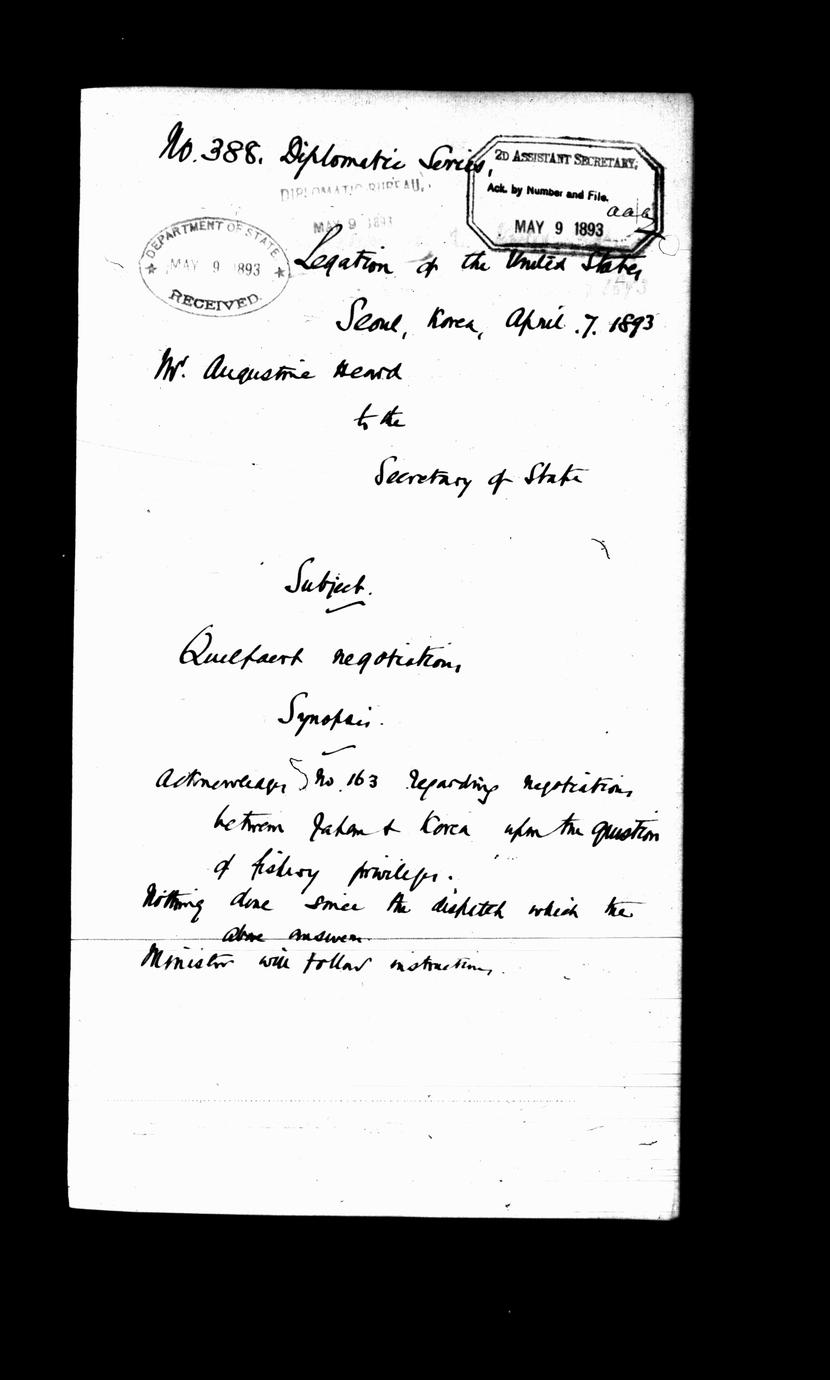 No. 388. Diplomatic Series,
2D ASSISTANT SECRETARY,
Ack. by Number and File.
MAY 9 1893
DIPLOMATIC BUREAU,
MAY 9 1893
DEPARTMENT OF STATE
MAY 9 1893
RECEIVED.
Legation of the United States,
Seoul, Korea, April .7. 1893
Mr. Augustine Heard
to the
Secretary of State
Subject.
Quelpaert negotiations
Synopsis.
Acknowledges No. 163 regarding negotiations
between Japan & Korea upon the question
of fishery privileges.
Nothing done since the dispatch which the
above answers.
Minister will follow instructions.